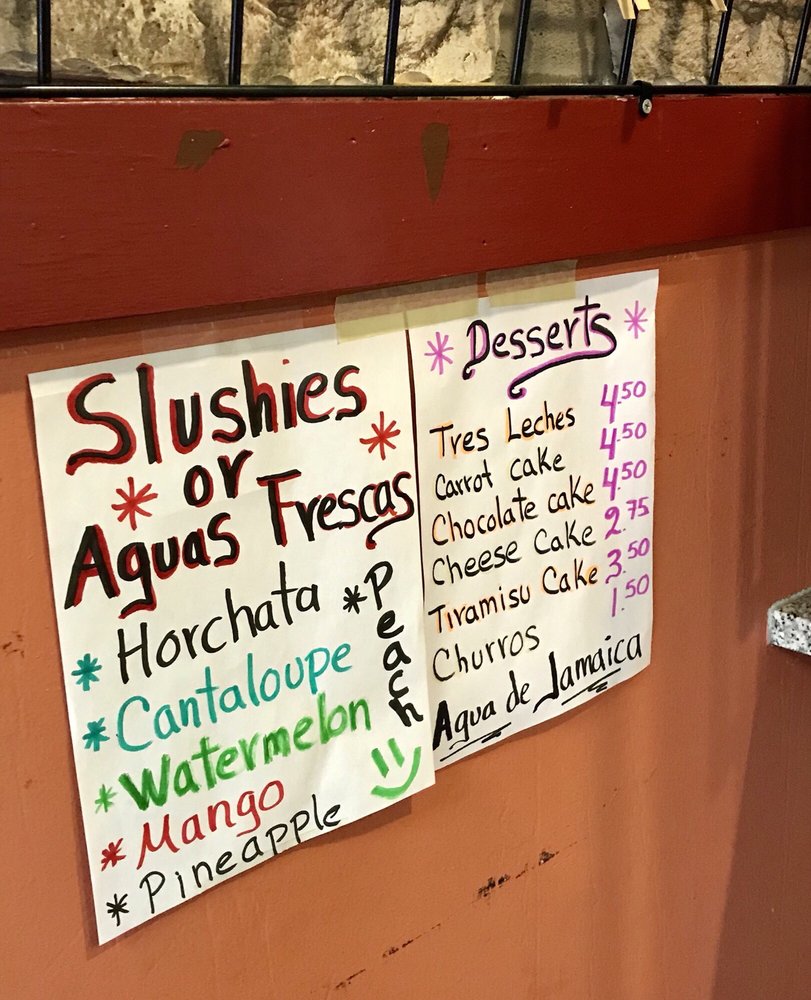 Slushies
or
Aguas Frescas
Horchata
Cantaloupe
Watermelon
Mango
Pineapple
Peach
Desserts
Tres Leches 4.50
Carrot cake 4.50
Chocolate cake 4.50
Cheese Cake 2.75
Tiramisu Cake 3.50
Churros 1.50
Agua de Jamaica